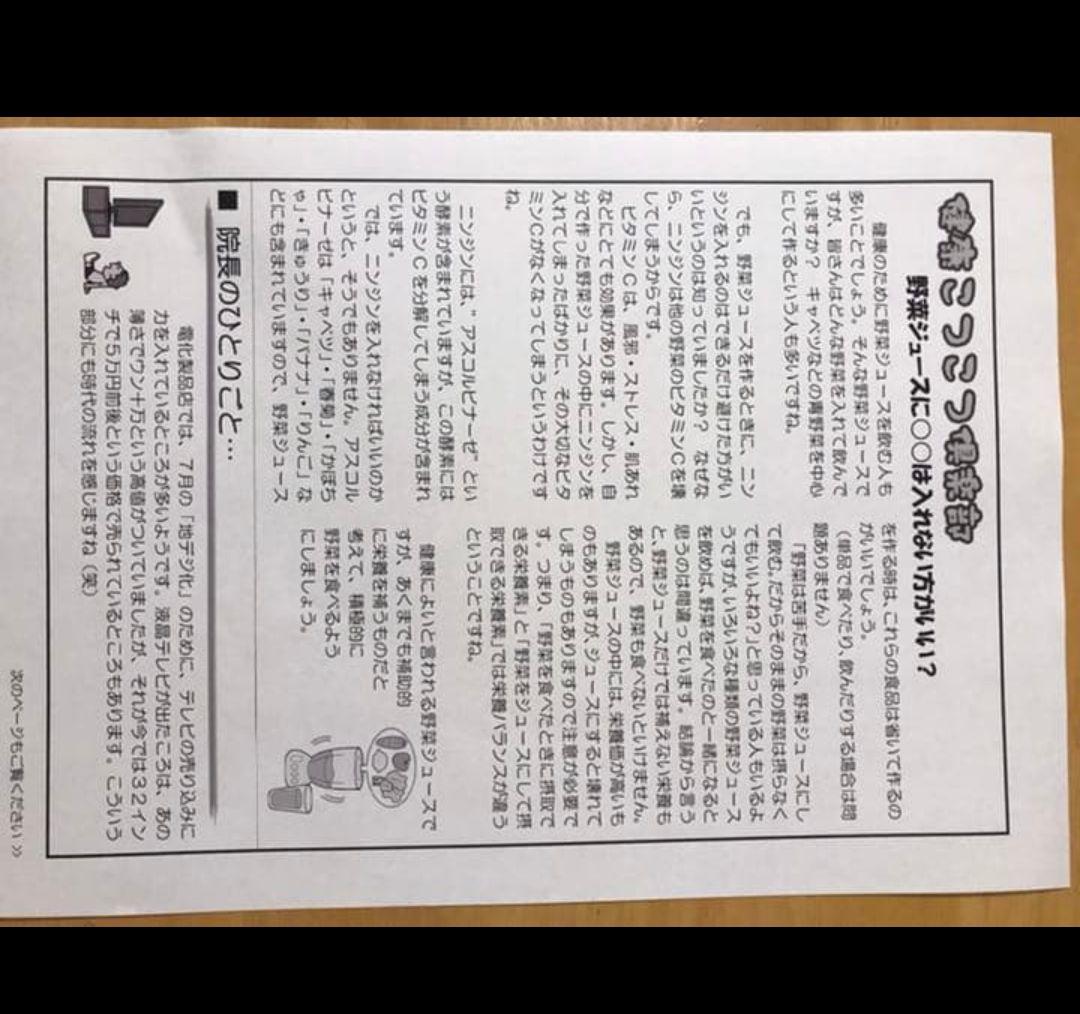 健康こつこつ倶楽部
野菜ジュースに○○は入れない方がいい？
健康のために野菜ジュースを飲む人も
多いことでしょう。そんな野菜ジュースで
すが、皆さんはどんな野菜を入れて飲んで
いますか？　キャベツなどの青野菜を中心
にして作るという人も多いですね。
でも、野菜ジュースを作るときに、ニン
ジンを入れるのはできるだけ避けた方がい
いというのは知っていましたか？　なぜな
ら、ニンジンは他の野菜のビタミンCを壊
してしまうからです。
ビタミンCは、風邪・ストレス・肌あれ
などにとても効果があります。しかし、自
分で作った野菜ジュースの中にニンジンを
入れてしまったばかりに、その大切なビタ
ミンCがなくなってしまうというわけです
ね。
ニンジンには、"アスコルビナーゼ"とい
う酵素が含まれていますが、この酵素には
ビタミンCを分解してしまう成分が含まれ
ています。
では、ニンジンを入れなければいいのか
というと、そうでもありません。アスコル
ビナーゼは「キャベツ」・「春菊」・「かぼち
ゃ」・「きゅうり」・「バナナ」・「りんご」な
どにも含まれていますので、野菜ジュース
を作る時は、これらの食品は省いて作るの
がいいでしょう。
（単品で食べたり、飲んだりする場合は問
題ありません）
「野菜は苦手だから、野菜ジュースにし
て飲む。だからそのままの野菜は摂らなく
てもいいよね？」と思っている人もいるよ
うですが、いろいろな種類の野菜ジュース
を飲めば、野菜を食べたのと一緒になると
思うのは間違っています。結論から言う
と、野菜ジュースだけでは補えない栄養も
あるので、野菜も食べないといけません。
野菜ジュースの中には、栄養価が高いも
のもありますが、ジュースにすると壊れて
しまうものもありますので注意が必要で
す。つまり、「野菜を食べたときに摂取で
きる栄養素」と「野菜をジュースにして摂
取できる栄養素」では栄養バランスが違う
ということですね。
健康によいと言われる野菜ジュースで
すが、あくまでも補助的
に栄養を補うものだと
考えて、積極的に
野菜を食べるよう
にしましょう。
■ 院長のひとりごと…
電化製品店では、7月の「地デジ化」のために、テレビの売り込みに
力を入れているところが多いようです。液晶テレビが出たころは、あの
薄さでウン十万という高値がついていましたが、それが今では32イン
チで5万円前後という価格で売られているところもあります。こういう
部分にも時代の流れを感じますね（笑）
次のページもご覧ください >>